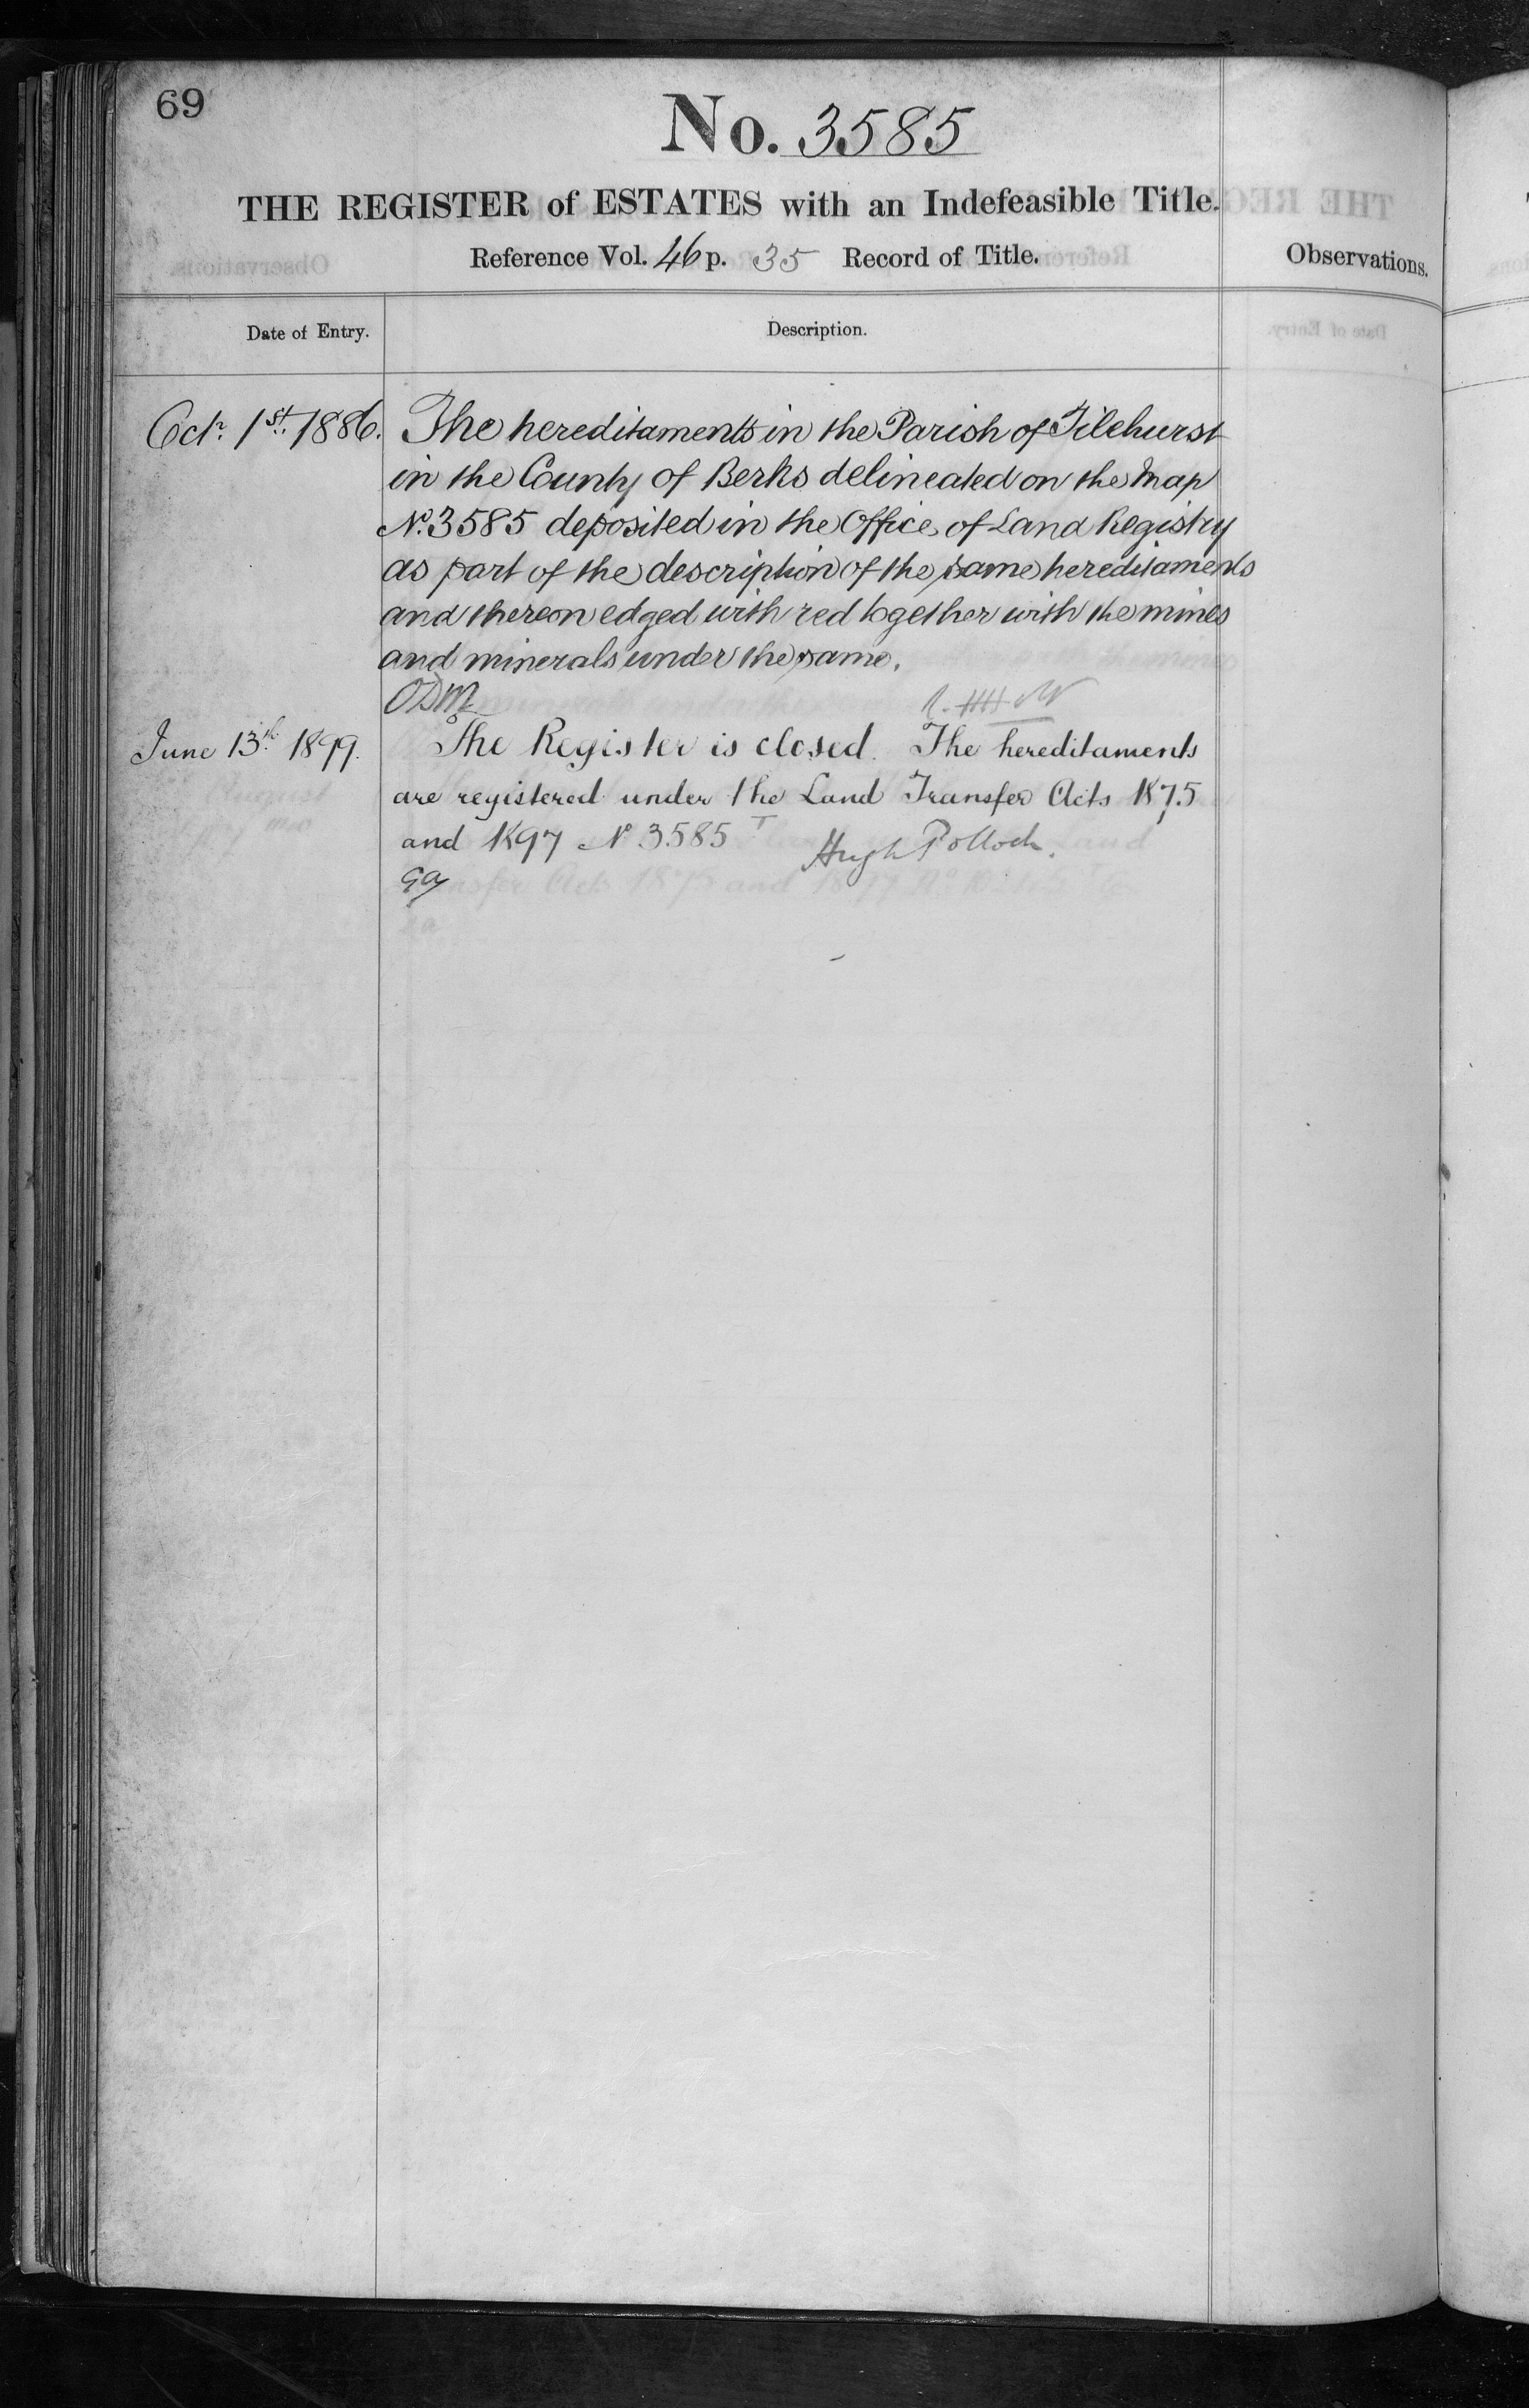 69
No. 3585
THE REGISTER of ESTATES with an Indefeasible Title.
Reference Vol. 46 p. 35 Record of Title.
Observations.
Date of Entry.
Description.
Octr. 1st. 1886. The hereditaments in the Parish of Tilehurst
in the County of Berks delineated on the Map
No. 3585 deposited in the Office of Land Registry
as part of the description of the same hereditaments
and thereon edged with red together with the mines
and minerals under the same.
ODM
June 13th 1899. The Register is closed. The hereditaments
are registered under the Land Transfer Acts 1875
and 1897 No 3585 T Hugh Pollock.